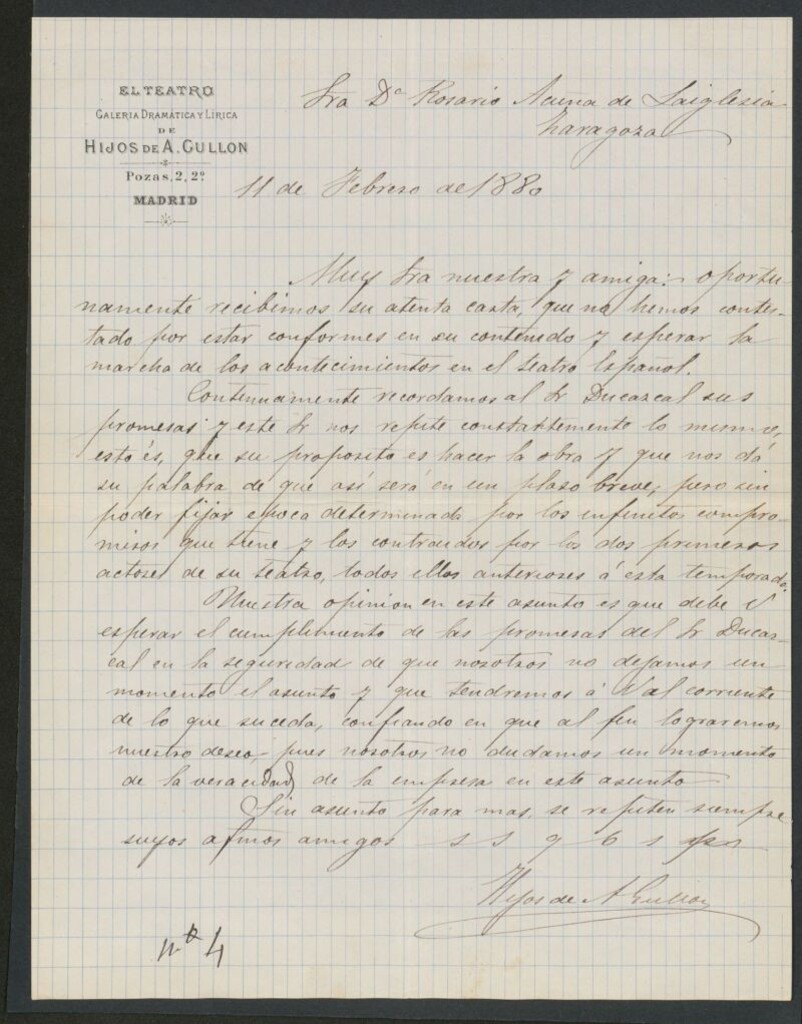 EL TEATRO
GALERIA DRAMÁTICA Y LÍRICA
DE
HIJOS DE A. GULLON
Pozas, 2, 2º
MADRID
Sra Dª Rosario Acuña de Laiglesia
Zaragoza
11 de Febrero de 1880
Muy Sra nuestra y amiga: oportu-
namente recibimos su atenta carta, que no hemos contes-
tado por estar conformes en su contenido y esperar la
marcha de los acontecimientos en el teatro Español.
Contenuamente recordamos al Sr Ducazcal sus
promesas y este Sr nos repite constantemente lo mismo,
esto és, que su proposito es hacer la obra y que nos dá
su palabra de que así será en un plazo breve, pero sin
poder fijar epoca determinada por los infinitos compro-
misos que tiene y los contraidos por los dos primeros
actores de su teatro, todos ellos anteriores á esta temporada.
Nuestra opinion en este asunto es que debe V
esperar el cumplimento de las promesas del Sr Ducaz-
cal en la seguridad de que nosotros no dejamos un
momento el asunto y que tendremos á V al corriente
de lo que suceda, confiando en que al fin lograremos
nuestro deseo, pues nosotros no dudamos un momento
de la veracidad de la empresa en este asunto
Sin asunto para mas, se repiten siempre
suyos afmos amigos s s q b s ps
Hijos de A Gullon
nº 4